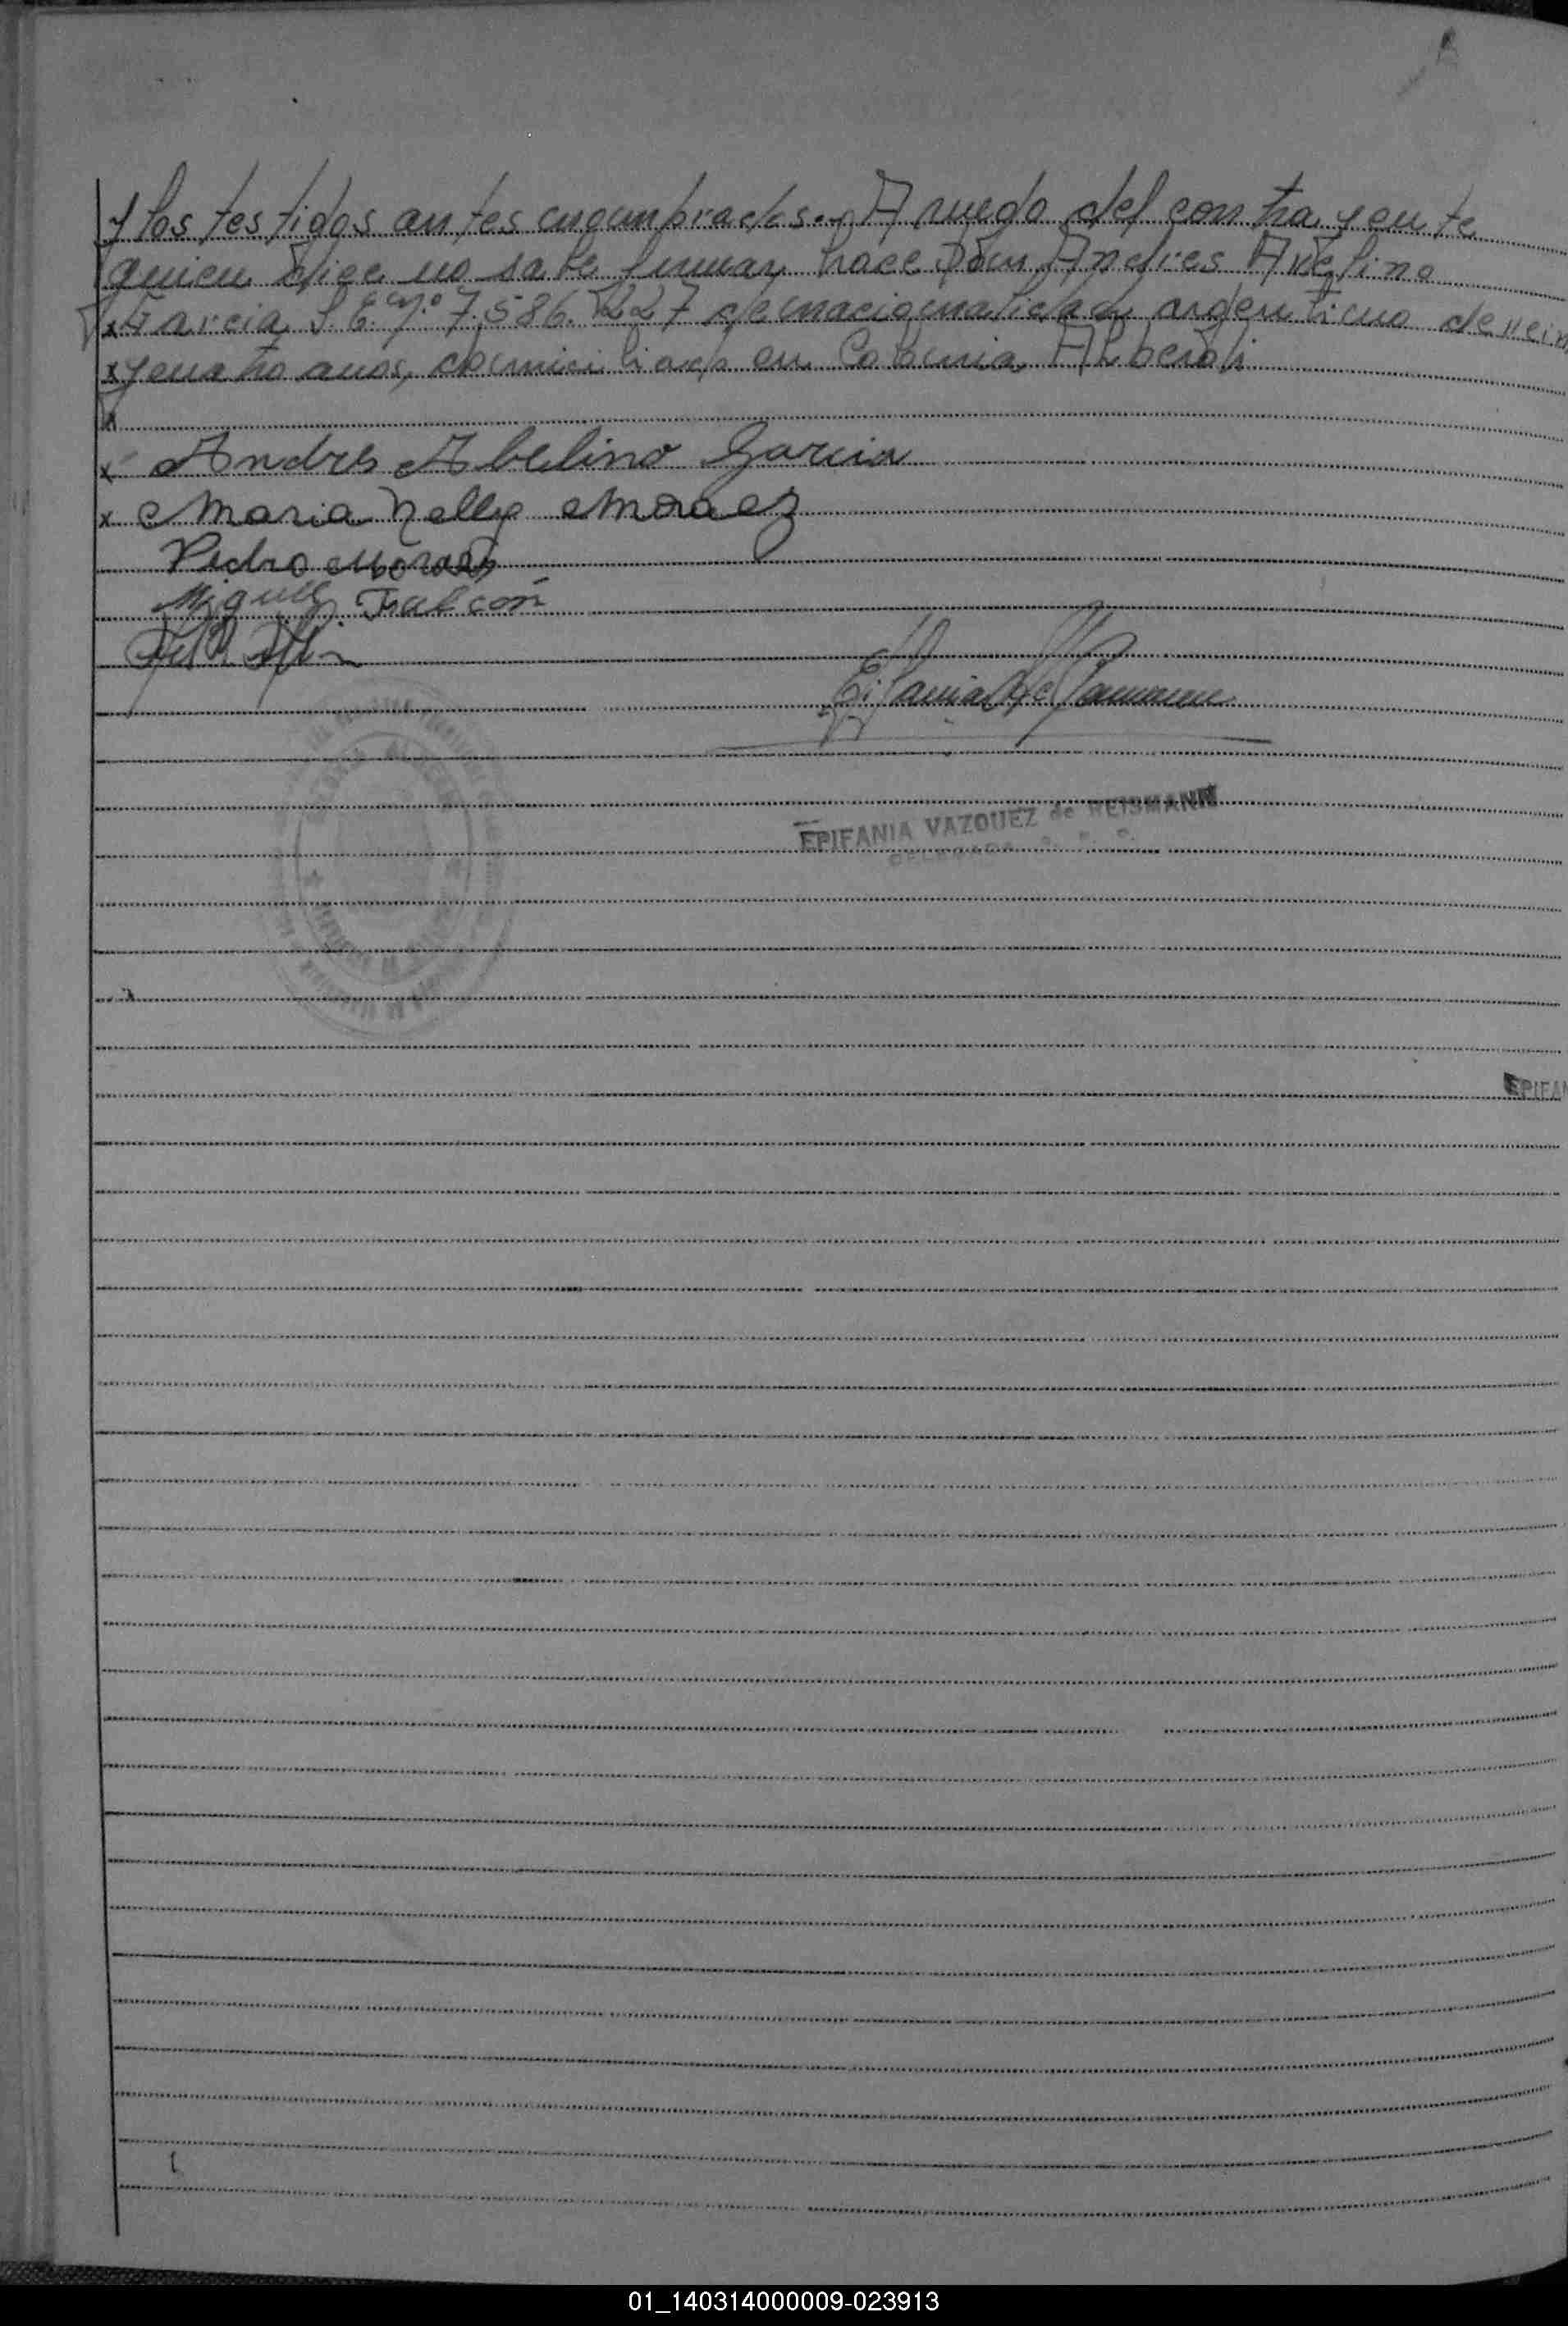 y los testigos antes enombrados.- A ruego del contrayente
quien dice no sabe firmar hace Don Andres Avelino
x Garcia L.E. Nº 7.586.227 de nacionalidad argentino de vein
x y cuatro anos, domiciliado en Colonia Alberdi
x
x Andres Abelino Garcia
x Maria Nelly Moraez
Pedro Moraes
Miguel Falcon
EPIFANIA VAZQUEZ de REISMANN
DELEGADA
EPIFAN
01_140314000009-023913